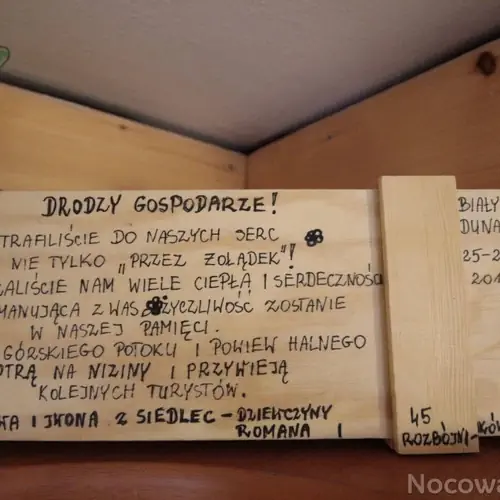 DRODZY GOSPODARZE!
TRAFILIŚCIE DO NASZYCH SERC
NIE TYLKO „PRZEZ ŻOŁĄDEK"!
ALIŚCIE NAM WIELE CIEPŁA I SERDECZNOŚCI
MANUJĄCA Z WAS ŻYCZLIWOŚĆ ZOSTANIE
W NASZEJ PAMIĘCI.
GÓRSKIEGO POTOKU I POWIEW HALNEGO
OTRĄ NA NIZINY I PRZYWIEJĄ
KOLEJNYCH TURYSTÓW.
KA I IWONA Z SIEDLEC – DZIEWCZYNY
ROMANA I
45
ROZBÓJNI-KÓW
BIAŁY
DUNA
25-2
201
Nocowa